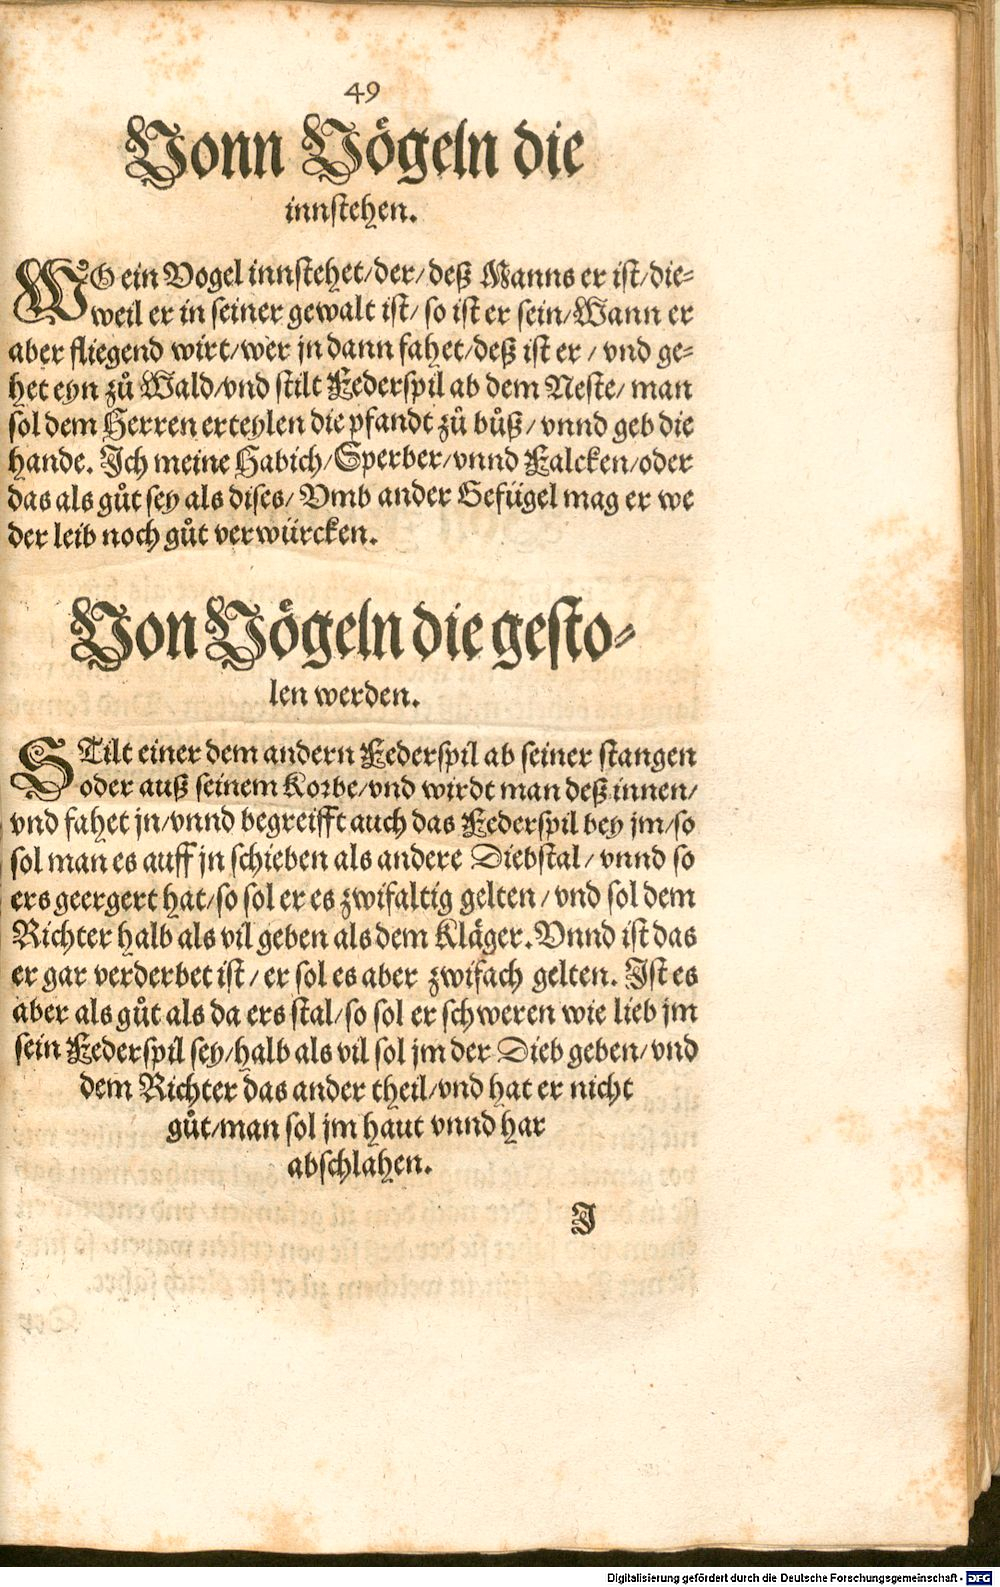 49
Vonn Vögeln die
innstehen.
WO ein Vogel innstehet/der/deß Manns er ist/die⸗
weil er in seiner gewalt ist/ so ist er sein/Wann er
aber fliegend wirt/wer jn dann fahet/deß ist er / vnd ge⸗
het eyn zů Wald/vnd stilt Federspil ab dem Neste/ man
sol dem Herren erteylen die pfandt zů bůß/ vnnd geb die
hande. Ich meine Habich/Sperber/vnnd Falcken/oder
das als gůt sey als dises/ Vmb ander Gefügel mag er we
der leib noch gůt verwürcken.
Von Vögeln die gesto⸗
len werden.
STilt einer dem andern Federspil ab seiner stangen
oder auß seinem Korbe/vnd wirdt man deß innen/
vnd fahet jn/vnnd begreifft auch das Federspil bey jm/so
sol man es auff jn schieben als andere Diebstal/ vnnd so
ers geergert hat/so sol er es zwifaltig gelten/ vnd sol dem
Richter halb als vil geben als dem Kläger. Vnnd ist das
er gar verderbet ist/ er sol es aber zwifach gelten. Ist es
aber als gůt als da ers stal/so sol er schweren wie lieb jm
sein Federspil sey/halb als vil sol jm der Dieb geben/vnd
dem Richter das ander theil/vnd hat er nicht
gůt/man sol jm haut vnnd har
abschlahen.
J
Digitalisierung gefördert durch die Deutsche Forschungsgemeinschaft - DFG